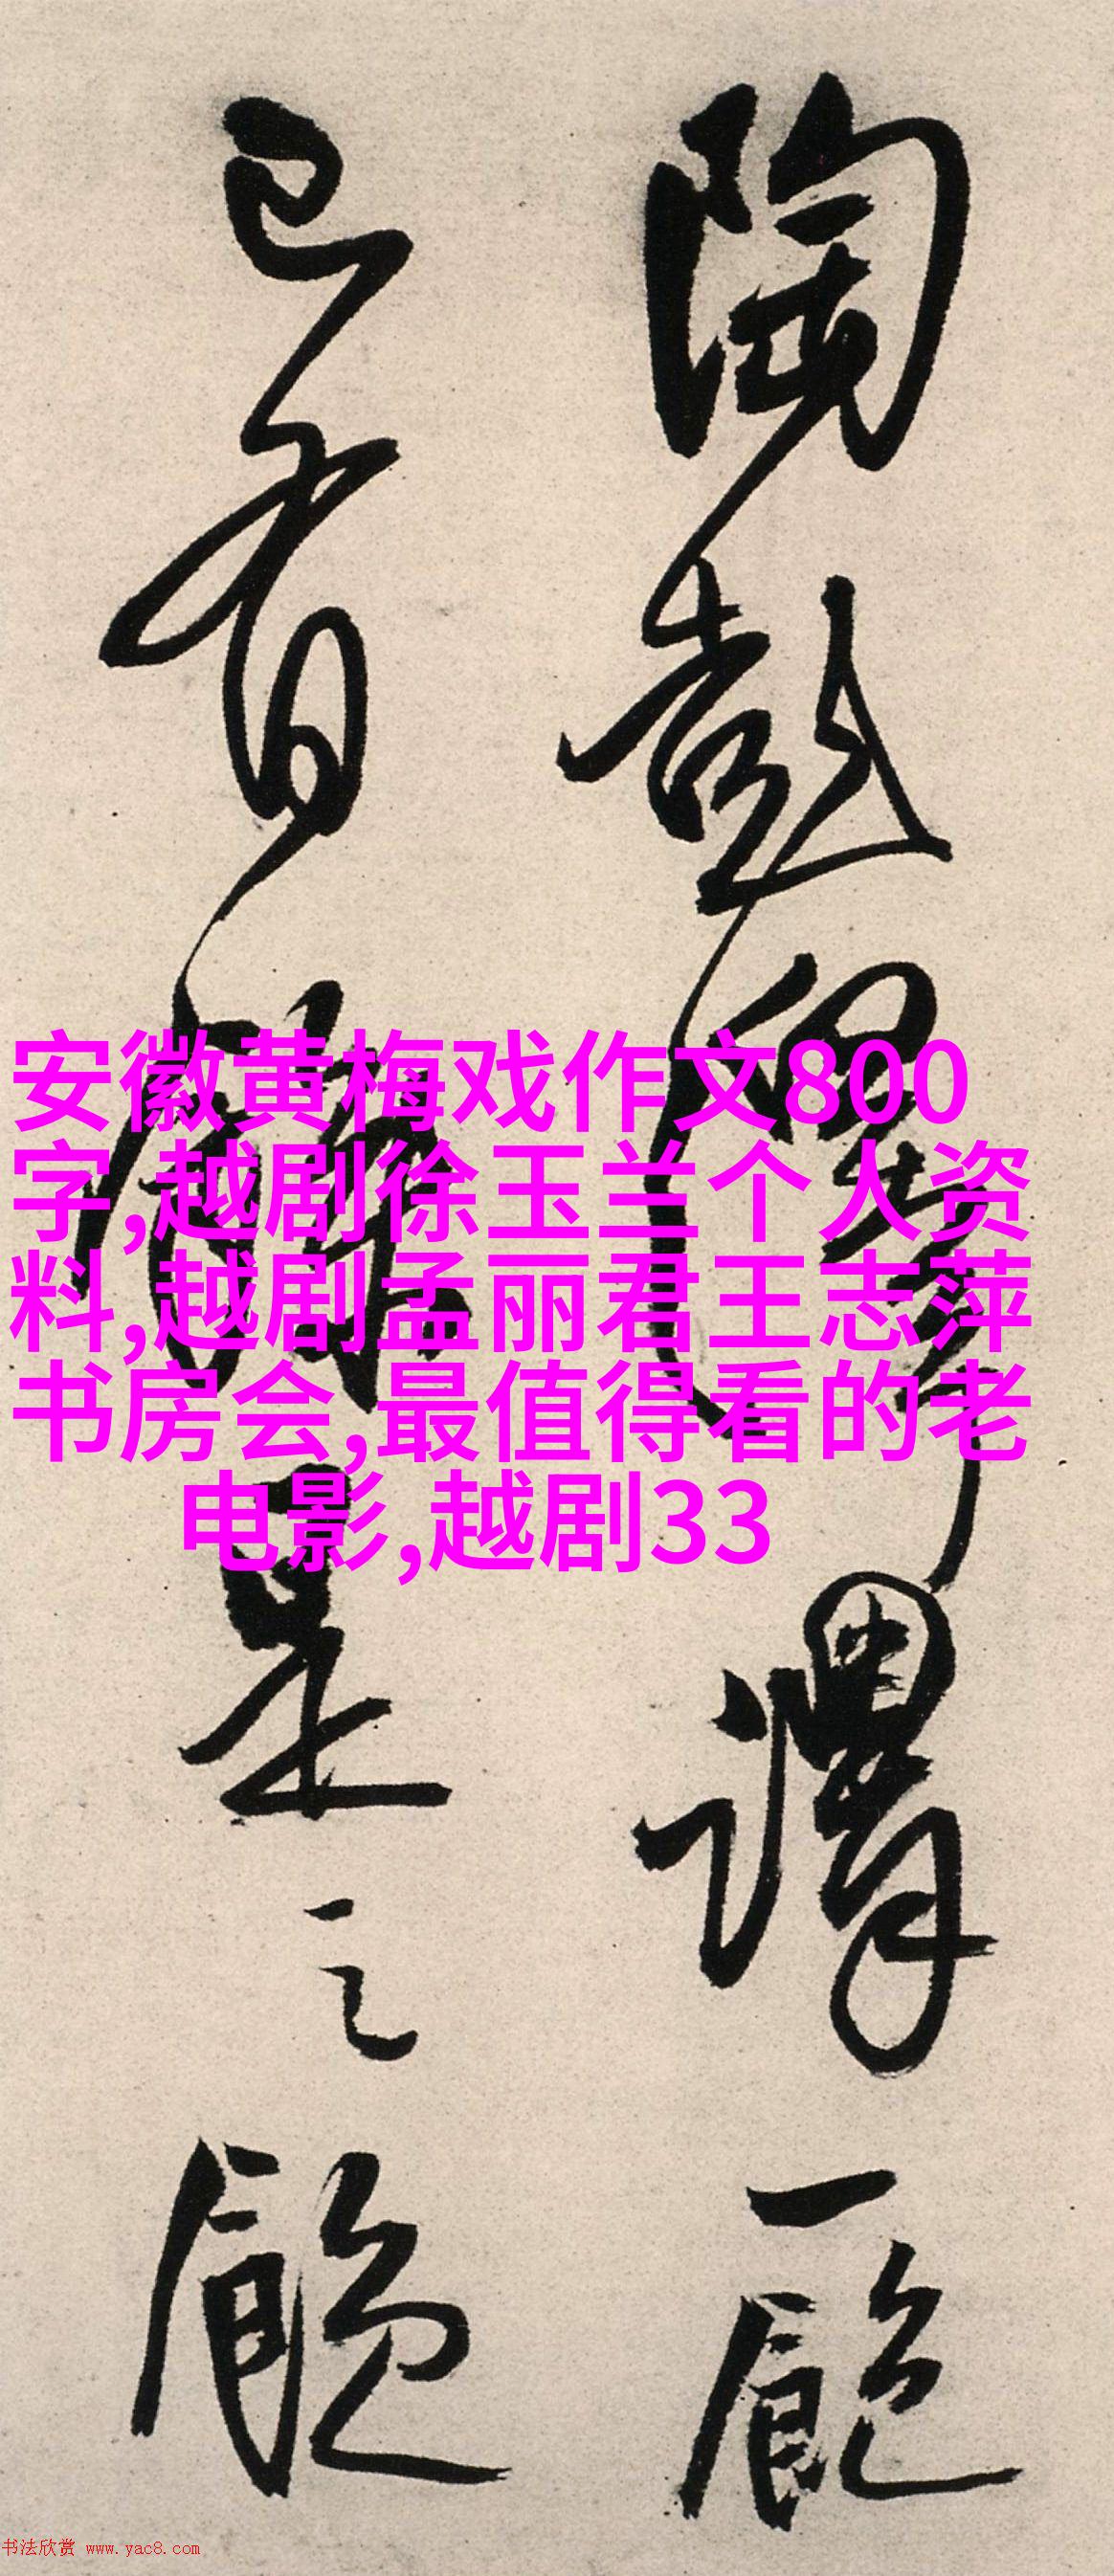 陶彭澤
謂一顧
已有
是之顧
安徽黄梅戏作文800
字,越剧徐玉兰个人资
料,越剧孟丽君王志萍
书房会,最值得看的老
电影,越剧33
书法欣赏 www.yac8.com